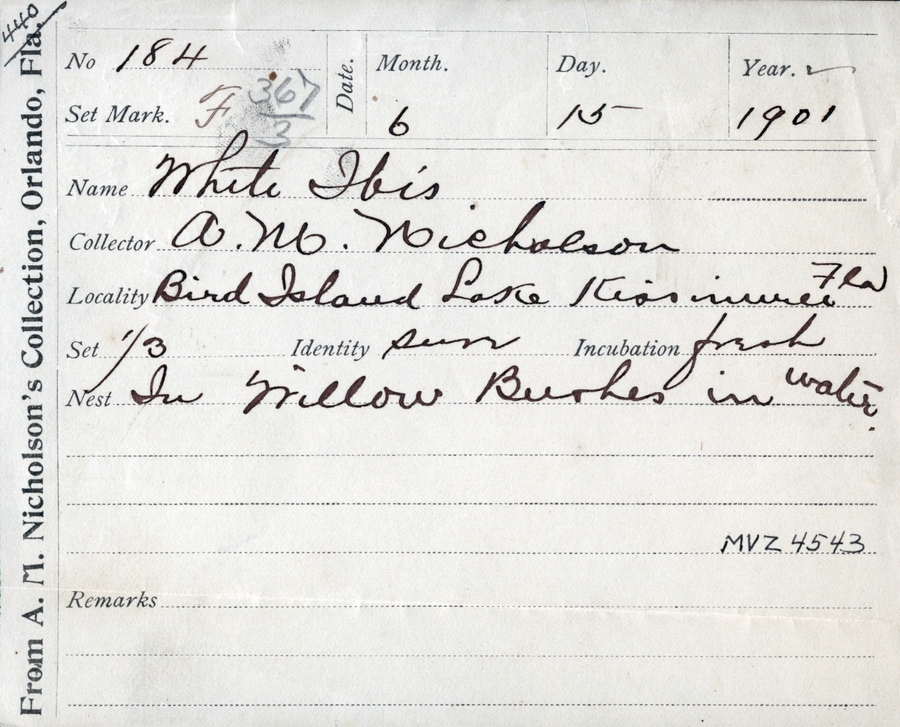 440
From A. M. Nicholson's Collection, Orlando, Fla.
No 184 Date. Month. Day. Year.
Set Mark. F 367/3 6 15 1901
Name White Ibis
Collector A. M. Nicholson
Locality Bird Island Lake Kissimmee Fla
Set 1/3 Identity sure Incubation fresh
Nest In Willow Bushes in water.
MVZ 4543
Remarks